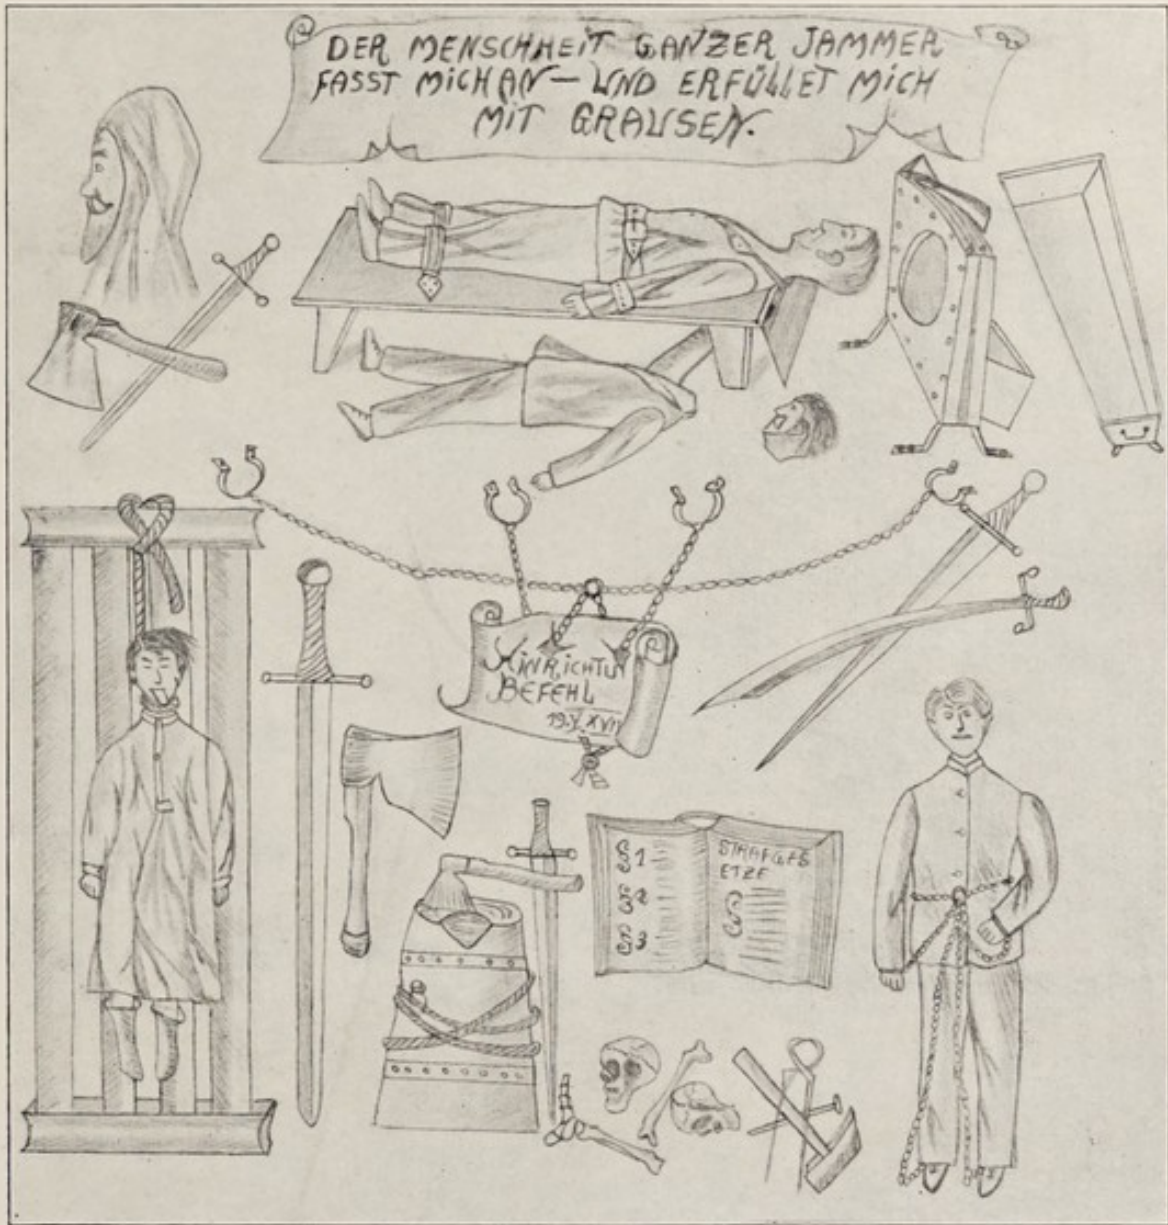 DER MENSCHHEIT GANZER JAMMER
FASST MICH AN — UND ERFÜLLET MICH
MIT GRAUSEN.
HINRICHTU
BEFEHL
§ 1
§ 2
§ 3
STRAFGES
ETZE
§